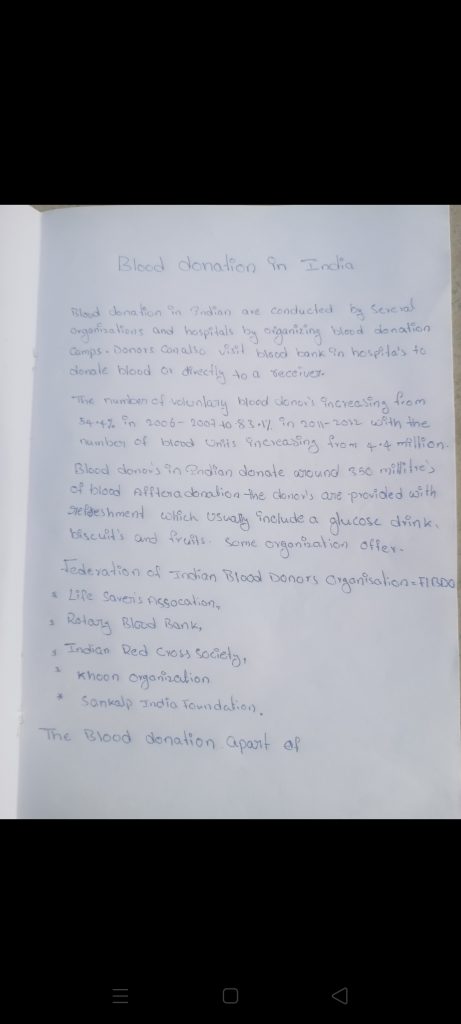 Blood donation in India
Blood donation in Indian are conducted by Several
organisations and hospitals by organizing blood donation
Camps. Donors Can also visit blood bank in hospital's to
donate blood or directly to a receiver.
The number of voluntary blood donor's increasing from
54.4% in 2006-2007 to 83.1% in 2011-2012 with the
number of blood units increasing from 4.4 million.
Blood donor's in Indian donate around 350 millitre's
of blood Afftera donation the donor's are provided with
refreshment which usually include a glucose drink,
biscuit's and fruits. some organization offer.
Federation of Indian Blood Donors Organisation = FIBDO
* Life Saver's Assocation,
* Rotary Blood Bank,
* Indian Red Cross Society,
* Khoon Organization
* Sankalp India Foundation.
The Blood donation apart of